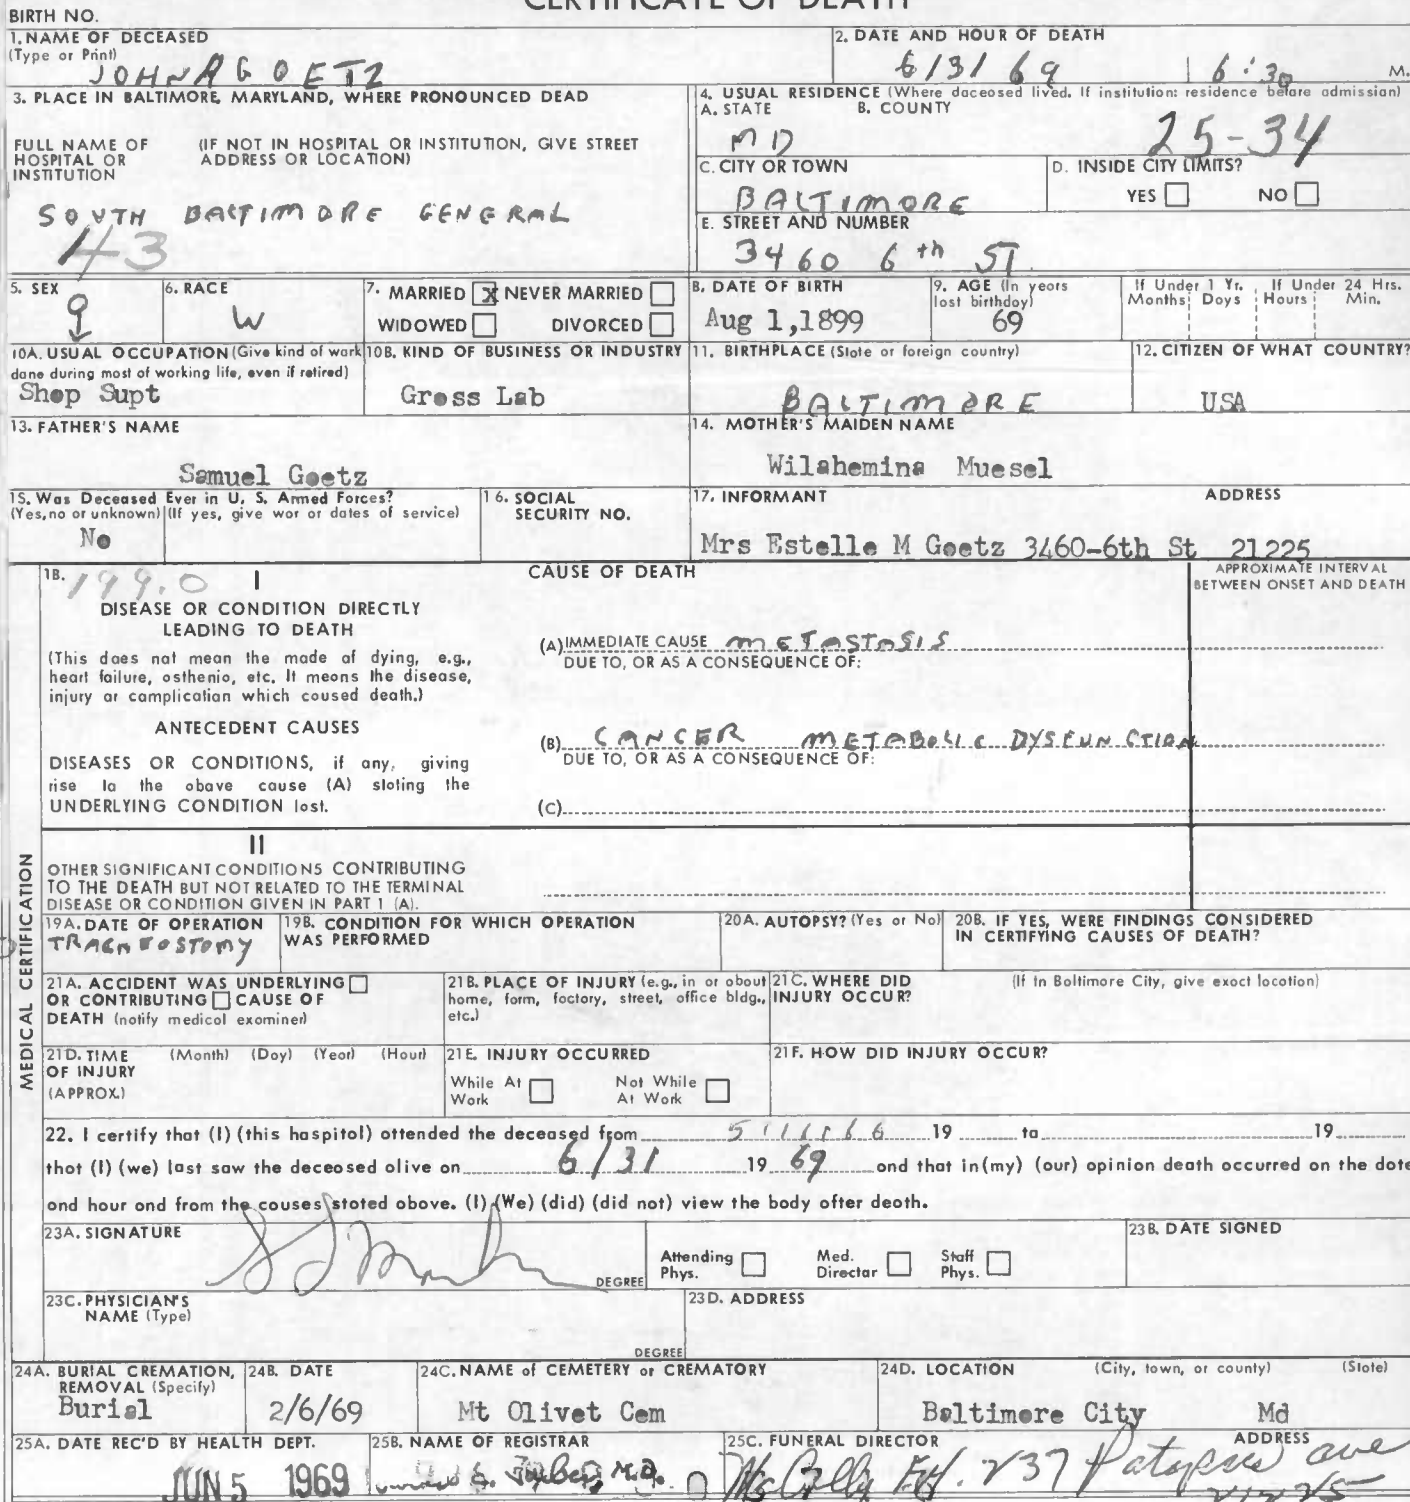 CERTIFICATE OF DEATH
BIRTH NO.
1. NAME OF DECEASED
(Type or Print)
JOHN A GOETZ
2. DATE AND HOUR OF DEATH
6/31 69 6:30 M.
3. PLACE IN BALTIMORE, MARYLAND, WHERE PRONOUNCED DEAD
FULL NAME OF HOSPITAL OR INSTITUTION
(IF NOT IN HOSPITAL OR INSTITUTION, GIVE STREET ADDRESS OR LOCATION)
SOUTH BALTIMORE GENERAL
43
4. USUAL RESIDENCE (Where deceosed lived. If institution: residence before admission)
A. STATE B. COUNTY
MD 25-34
C. CITY OR TOWN
BALTIMORE
D. INSIDE CITY LIMITS?
YES NO
E. STREET AND NUMBER
3460 6th ST.
5. SEX
6. RACE
W
7. MARRIED X NEVER MARRIED
WIDOWED DIVORCED
8. DATE OF BIRTH
Aug 1,1899
9. AGE (In years lost birthdoy)
69
If Under 1 Yr. Months Doys
If Under 24 Hrs. Hours Min.
10A. USUAL OCCUPATION (Give kind of work done during most of working life, even if retired)
Shop Supt
10B. KIND OF BUSINESS OR INDUSTRY
Gross Lab
11. BIRTHPLACE (Stote or foreign country)
BALTIMORE
12. CITIZEN OF WHAT COUNTRY?
USA
13. FATHER'S NAME
Samuel Goetz
14. MOTHER'S MAIDEN NAME
Wilahemina Muesel
15. Was Deceased Ever in U. S. Armed Forces?
(Yes, no or unknown) (If yes, give wor or dates of service)
No
16. SOCIAL SECURITY NO.
17. INFORMANT ADDRESS
Mrs Estelle M Goetz 3460-6th St 21225
18. 199.0 I
CAUSE OF DEATH
APPROXIMATE INTERVAL BETWEEN ONSET AND DEATH
DISEASE OR CONDITION DIRECTLY
LEADING TO DEATH
(This daes nat mean the made af dying, e.g.,
heart failure, osthenio, etc. It meons the disease,
injury ar camplicatian which coused death.)
(A) IMMEDIATE CAUSE METASTASIS
DUE TO, OR AS A CONSEQUENCE OF:
ANTECEDENT CAUSES
DISEASES OR CONDITIONS, if any, giving
rise la the obove cause (A) sloting the
UNDERLYING CONDITION lost.
(B) CANCER METABOLIC DYSFUNCTION
DUE TO, OR AS A CONSEQUENCE OF:
(C)
II
OTHER SIGNIFICANT CONDITIONS CONTRIBUTING
TO THE DEATH BUT NOT RELATED TO THE TERMINAL
DISEASE OR CONDITION GIVEN IN PART 1 (A).
MEDICAL CERTIFICATION
19A. DATE OF OPERATION
TRACHEOSTOMY
19B. CONDITION FOR WHICH OPERATION WAS PERFORMED
20A. AUTOPSY? (Yes or No)
20B. IF YES, WERE FINDINGS CONSIDERED IN CERTIFYING CAUSES OF DEATH?
21A. ACCIDENT WAS UNDERLYING
OR CONTRIBUTING CAUSE OF
DEATH (notify medicol examiner)
21B. PLACE OF INJURY (e.g., in or obout home, form, foctory, street, office bldg., etc.)
21C. WHERE DID INJURY OCCUR?
(If in Boltimore City, give exoct location)
21D. TIME OF INJURY (APPROX.)
(Month) (Doy) (Yeor) (Hour)
21E. INJURY OCCURRED
While At Work Not While At Work
21F. HOW DID INJURY OCCUR?
22. I certify that (I) (this haspitol) ottended the deceased from 19 ta 19
thot (I) (we) last saw the deceosed olive on 6/31 19 69 ond that in (my) (our) opinion death occurred on the dote
ond hour ond from the couses stoted obove. (I) (We) (did) (did not) view the body ofter death.
23A. SIGNATURE
DEGREE
Attending Phys. Med. Directar Staff Phys.
23B. DATE SIGNED
23C. PHYSICIAN'S NAME (Type)
DEGREE
23D. ADDRESS
24A. BURIAL CREMATION, REMOVAL (Specify)
Burial
24B. DATE
2/6/69
24C. NAME of CEMETERY or CREMATORY
Mt Olivet Cem
24D. LOCATION (City, town, or county) (Stote)
Baltimore City Md
25A. DATE REC'D BY HEALTH DEPT.
JUN 5 1969
25B. NAME OF REGISTRAR
M.D.
25C. FUNERAL DIRECTOR ADDRESS
McCully F.H. 237 Patapsco ave
21225